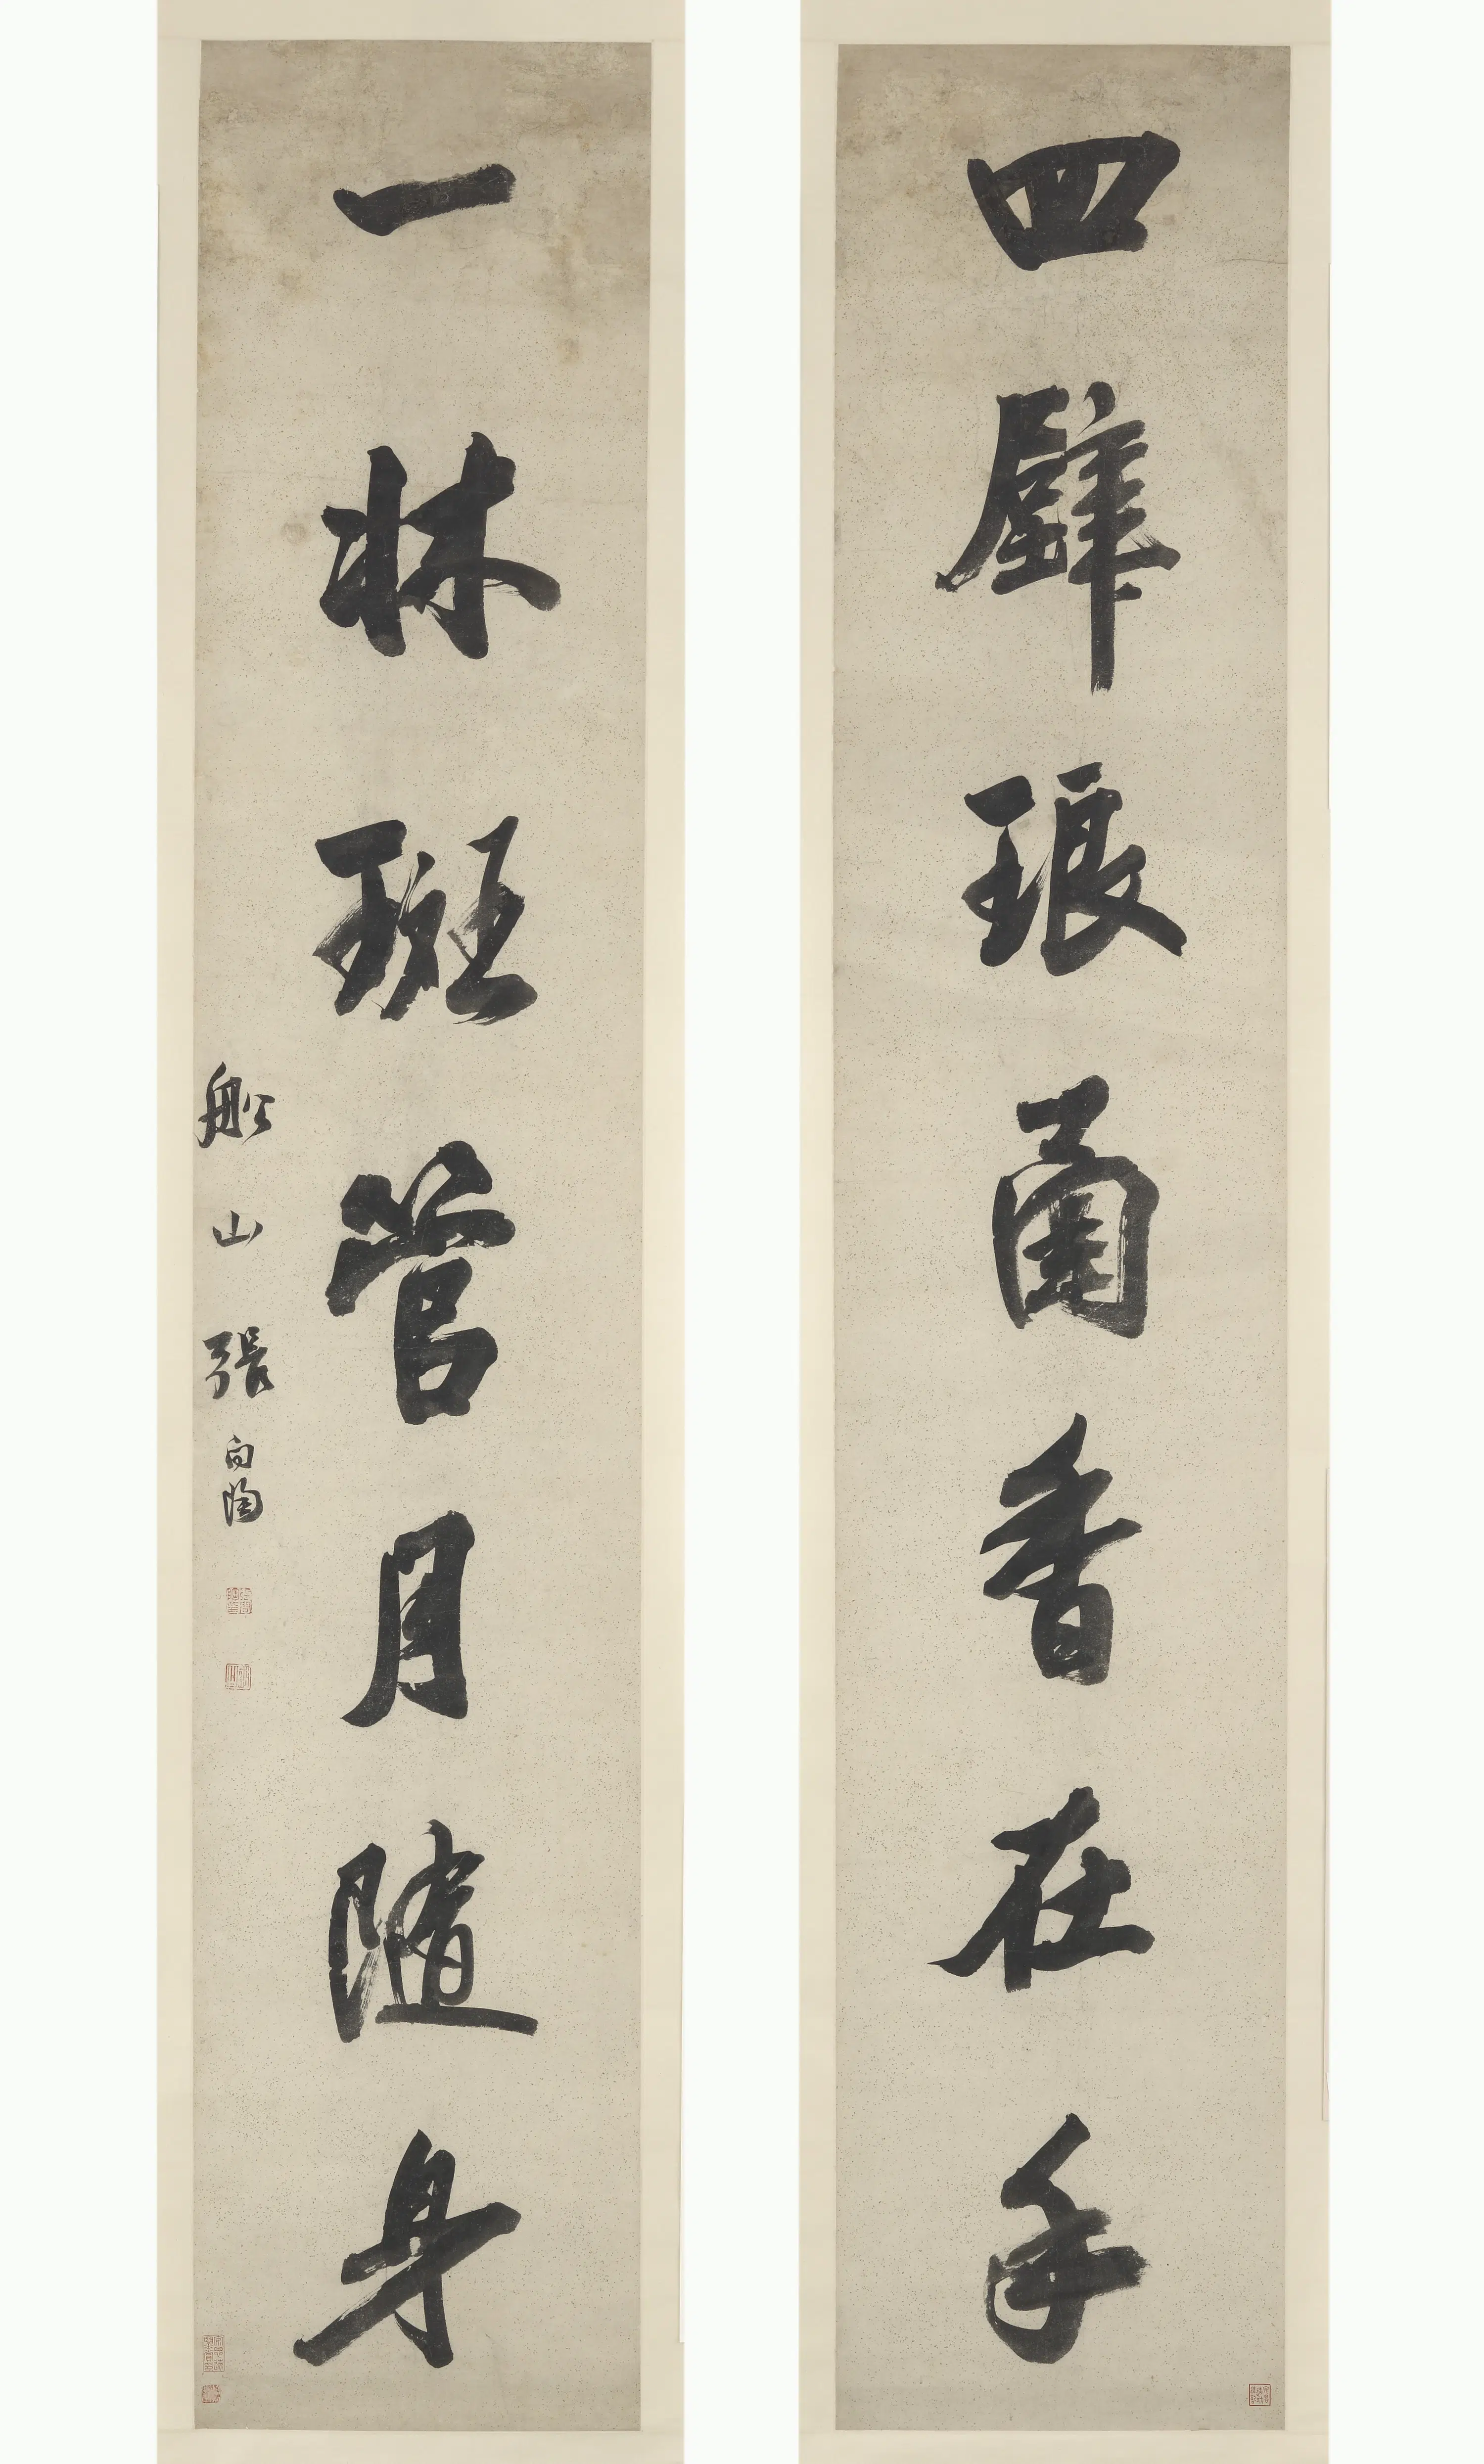 四壁琅函香在手
一牀斑管月隨身
船山張問陶